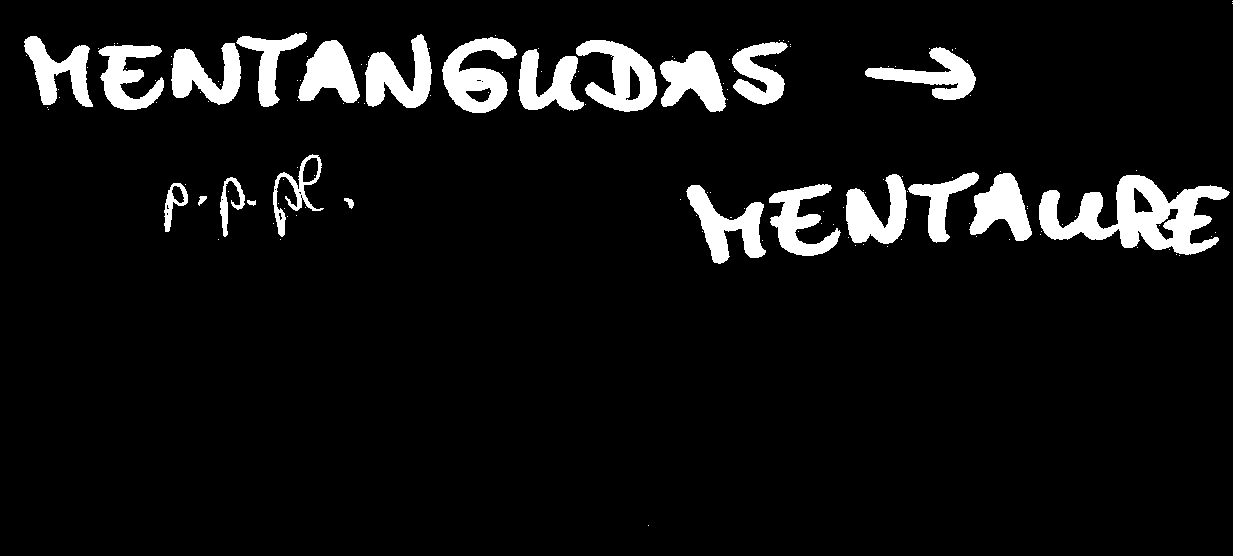 MENTANGUDAS →
p. p. pl.
MENTAURE